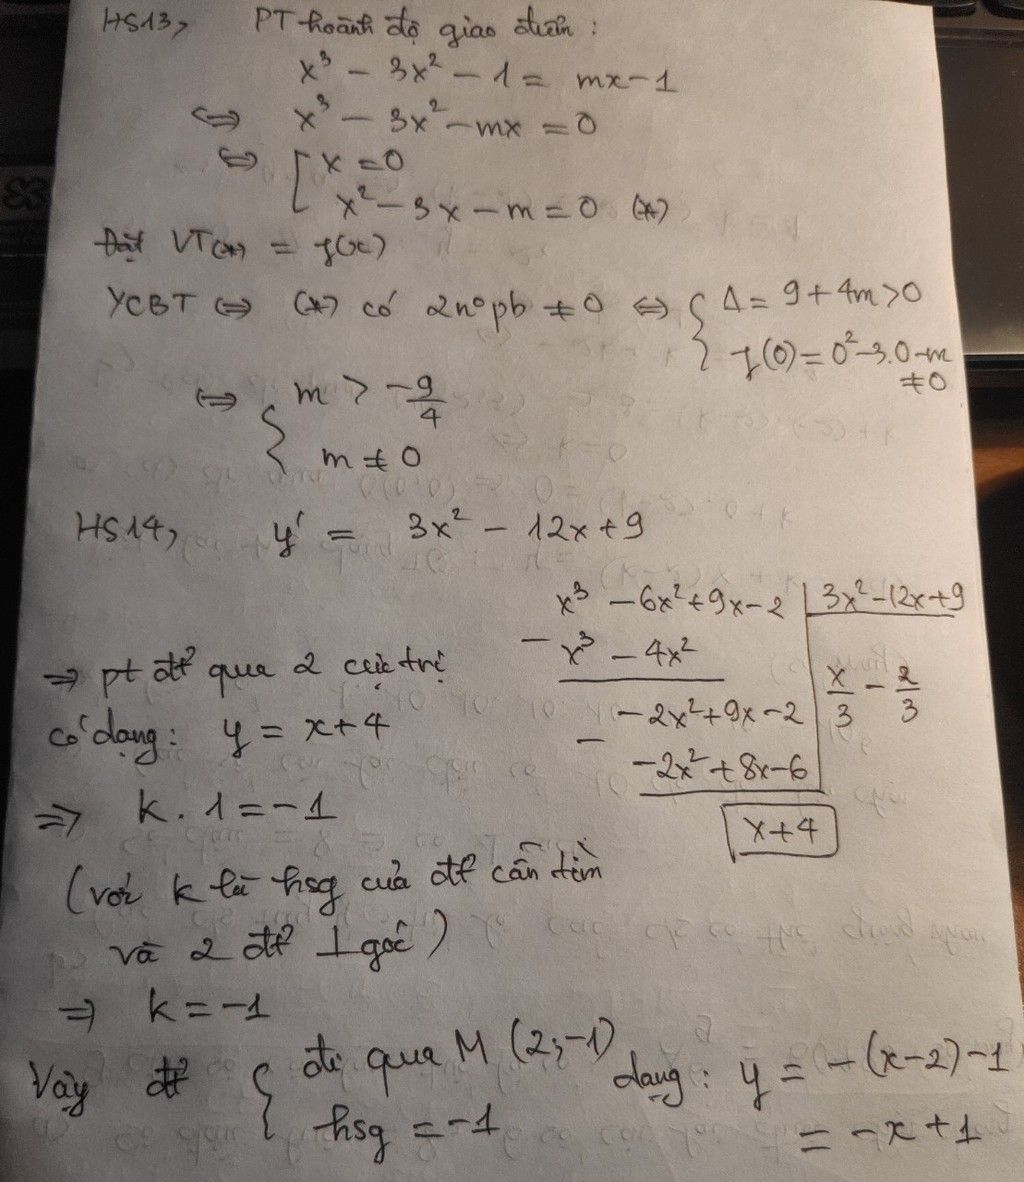 HS13, PT hoành độ giao điểm :
x³ - 3x² - 1 = mx - 1
⇔ x³ - 3x² - mx = 0
⇔ [ x = 0
x² - 3x - m = 0 (*)
Đặt VT(*) = f(x)
YCBT ⇔ (*) có 2 nº pb ≠ 0 ⇔ { Δ = 9 + 4m > 0
f(0) = 0² - 3.0 - m
≠ 0
⇔ { m > -9/4
m ≠ 0
HS14, y' = 3x² - 12x + 9
x³ - 6x² + 9x - 2 | 3x² - 12x + 9
- x³ - 4x²
x/3 - 2/3
- 2x² + 9x - 2
- -2x² + 8x - 6
x + 4
⇒ pt đt² qua 2 cực trị
có dạng : y = x + 4
⇒ k . 1 = -1
(với k là hsg của đt² cần tìm
và 2 đt² ⊥ góc)
⇒ k = -1
Vậy đt² { đi qua M (2;-1)
hsg = -1
dạng : y = -(x-2) - 1
= -x + 1